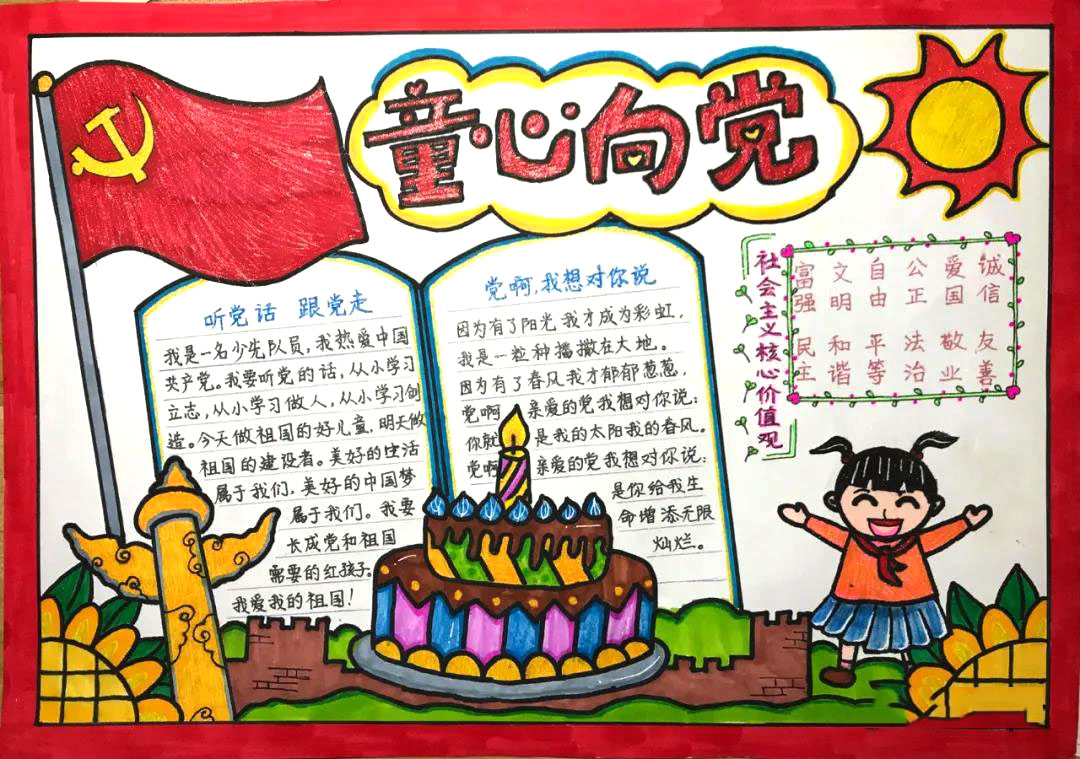 童心向党
听党话 跟党走
我是一名少先队员,我热爱中国
共产党。我要听党的话,从小学习
立志,从小学习做人,从小学习创
造。今天做祖国的好儿童,明天做
祖国的建设者。美好的生活
属于我们,美好的中国梦
属于我们。我要
长成党和祖国
需要的红孩子。
我爱我的祖国!
党啊,我想对你说
因为有了阳光我才成为彩虹,
我是一粒种播撒在大地。
因为有了春风我才郁郁葱葱,
党啊 亲爱的党我想对你说:
你就 是我的太阳我的春风。
党啊 亲爱的党我想对你说:
是你给我生
命增添无限
灿烂。
社会主义核心价值观
富强 文明 自由 公正 爱国 诚信
民主 和谐 平等 法治 敬业 友善